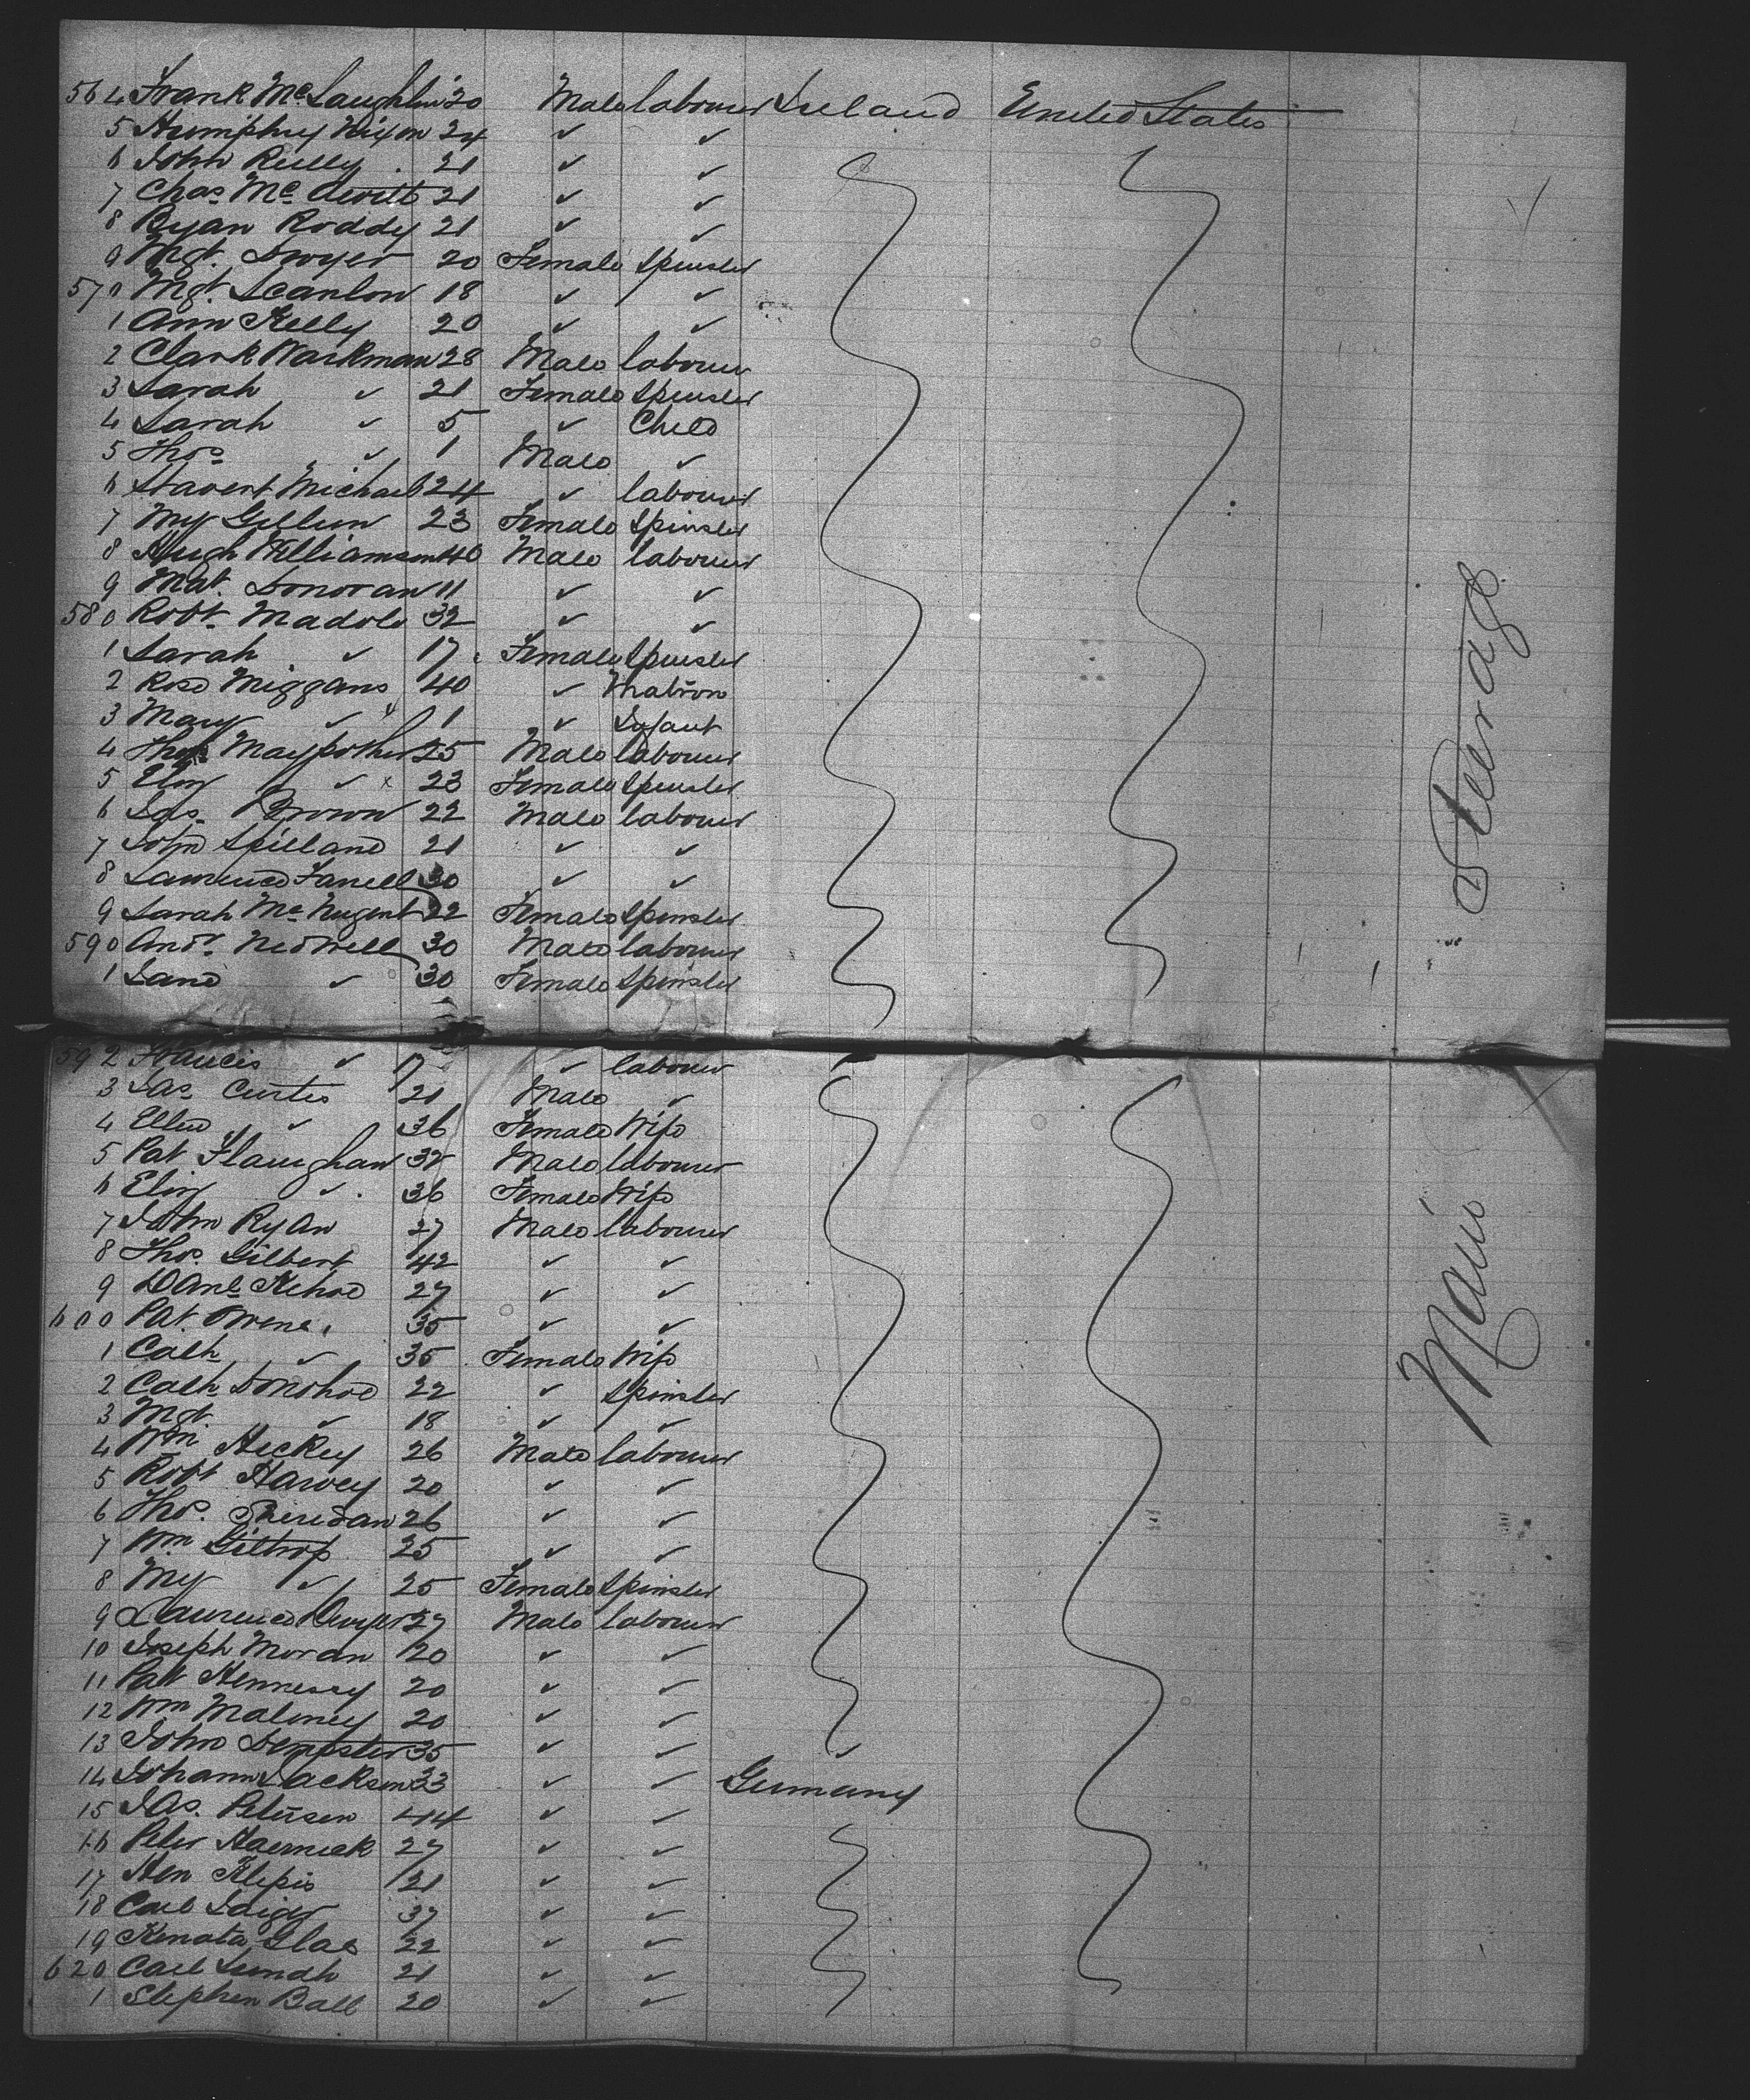 564 Frank McLaughlin 20 Male labourer Ireland United States
5 Humphry Nixon 24 ✓ ✓
6 John Reilly 21 ✓ ✓
7 Chas. Mc Devitt 21 ✓ ✓
8 Ryan Roddy 21 ✓ ✓
9 Mgt. Dwyer 20 Female Spinster
570 Mgt. Scanlon 18 ✓ ✓
1 Ann Kelly 20 ✓ ✓
2 Clark Warkman 28 Male labourer
3 Sarah ✓ 21 Female Spinster
4 Sarah ✓ 5 ✓ Child
5 Thos ✓ 1 Male ✓
6 Michael 24 ✓ labourer
7 My Gillen 23 Female Spinster
8 Hugh Williamson 40 Male labourer
9 Mat. Donovan 11 ✓ ✓
580 Robt. Madole 32 ✓ ✓
1 Sarah ✓ 17 Female Spinster
2 Rose Miggans 40 ✓ Matron
3 Mary ✓ 1 ✓ Infant
4 Thos Maypother 25 Male labourer
5 Eliz ✓ 23 Female Spinster
6 Jas. Brown 22 Male labourer
7 John Spilland 21 ✓ ✓
8 Laurence Farrell 30 ✓ ✓
9 Sarah Mc Nugent 22 Female Spinster
590 Andr. Nedwell 30 Male labourer
1 Jane ✓ 30 Female Spinster
592 Francis ✓ 7 ✓ labourer
3 Jas Curtis 21 Male ✓
4 Ellen ✓ 36 Female Wife
5 Pat Flanighan 38 Male labourer
6 Eliz ✓ 36 Female Wife
7 John Ryan 27 Male labourer
8 Thos. Gilbert 42 ✓ ✓
9 Danl Kehoe 27 ✓ ✓
600 Pat. Owens 35 ✓ ✓
1 Cath ✓ 35 Female Wife
2 Cath Donohoe 22 ✓ Spinster
3 Mgt. ✓ 18 ✓ ✓
4 Wm Hickey 26 Male labourer
5 Robt Harvey 20 ✓ ✓
6 Thos. Sheridan 26 ✓ ✓
7 Wm Giltrap 25 ✓ ✓
8 My ✓ 25 Female Spinster
9 Laurence Dwyer 27 Male labourer
10 Joseph Moran 20 ✓ ✓
11 Pat Hennessy 20 ✓ ✓
12 Wm Maloney 20 ✓ ✓
13 John Dempster 35 ✓ ✓ ✓
14 Johann Jackson 33 ✓ ✓ Germany
15 Jas. Petersen 44 ✓ ✓
16 Peter 27 ✓ ✓
17 Hen Klepis 21 ✓ ✓
18 Carl 37 ✓ ✓
19 22 ✓ ✓
620 Carl Lundh 21 ✓ ✓
1 Stephen Ball 20 ✓ ✓
Steerage
Main